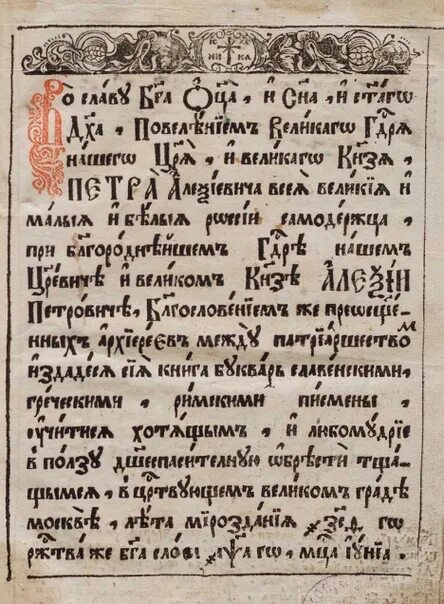 І҃С Х҃С
НИ КА
Во славу Бг҃а Ѻ҆ц҃а, и҆ Сн҃а, и҆ ст҃агѡ
Дх҃а, Повелѣ́нїемъ Вели́кагѡ Гдⷭ҇ря
на́шегѡ Цр҃я, и҆ вели́кагѡ Кн҃зя,
ПЕТРА̀ Алеѯі́евича всея̀ вели́кїѧ и҆
ма́лыѧ и҆ бѣ́лыѧ рѡсі́и самоде́ржца,
при бл҃горо́днѣйшемъ Гдⷭ҇рѣ на́шемъ
Цр҃е́вичѣ и҆ вели́комъ Кн҃зѣ АЛЕѮІ́И
Петро́вичѣ, Бл҃гослове́нїемъ же прешс҃ще́н-
ныхъ а҆рхїере́євъ между̀ патрїа́ршествомъ
и҆зда́десѧ сїѧ̀ кни́га бꙋква́рь славе́нскими,
гре́ческими, ри́мскими писмены̀,
ᲂу҆чи́тисѧ хотѧ́щымъ, и҆ любомꙋ́дрїе
в по́лзꙋ дш҃еспаси́тельнꙋю ѡ҆брѣстѝ тща́-
щымсѧ, в црⷭ҇твꙋющемъ вели́комъ гра́дѣ
москвѣ̀, лѣ́та мірозда́нїѧ ҂зс҃ѳ гѡ
ржⷭ҇тва̀ же бг҃а сло́ва ҂аѱ҃а гѡ, мцⷭ҇а і҆ꙋ́нїа.